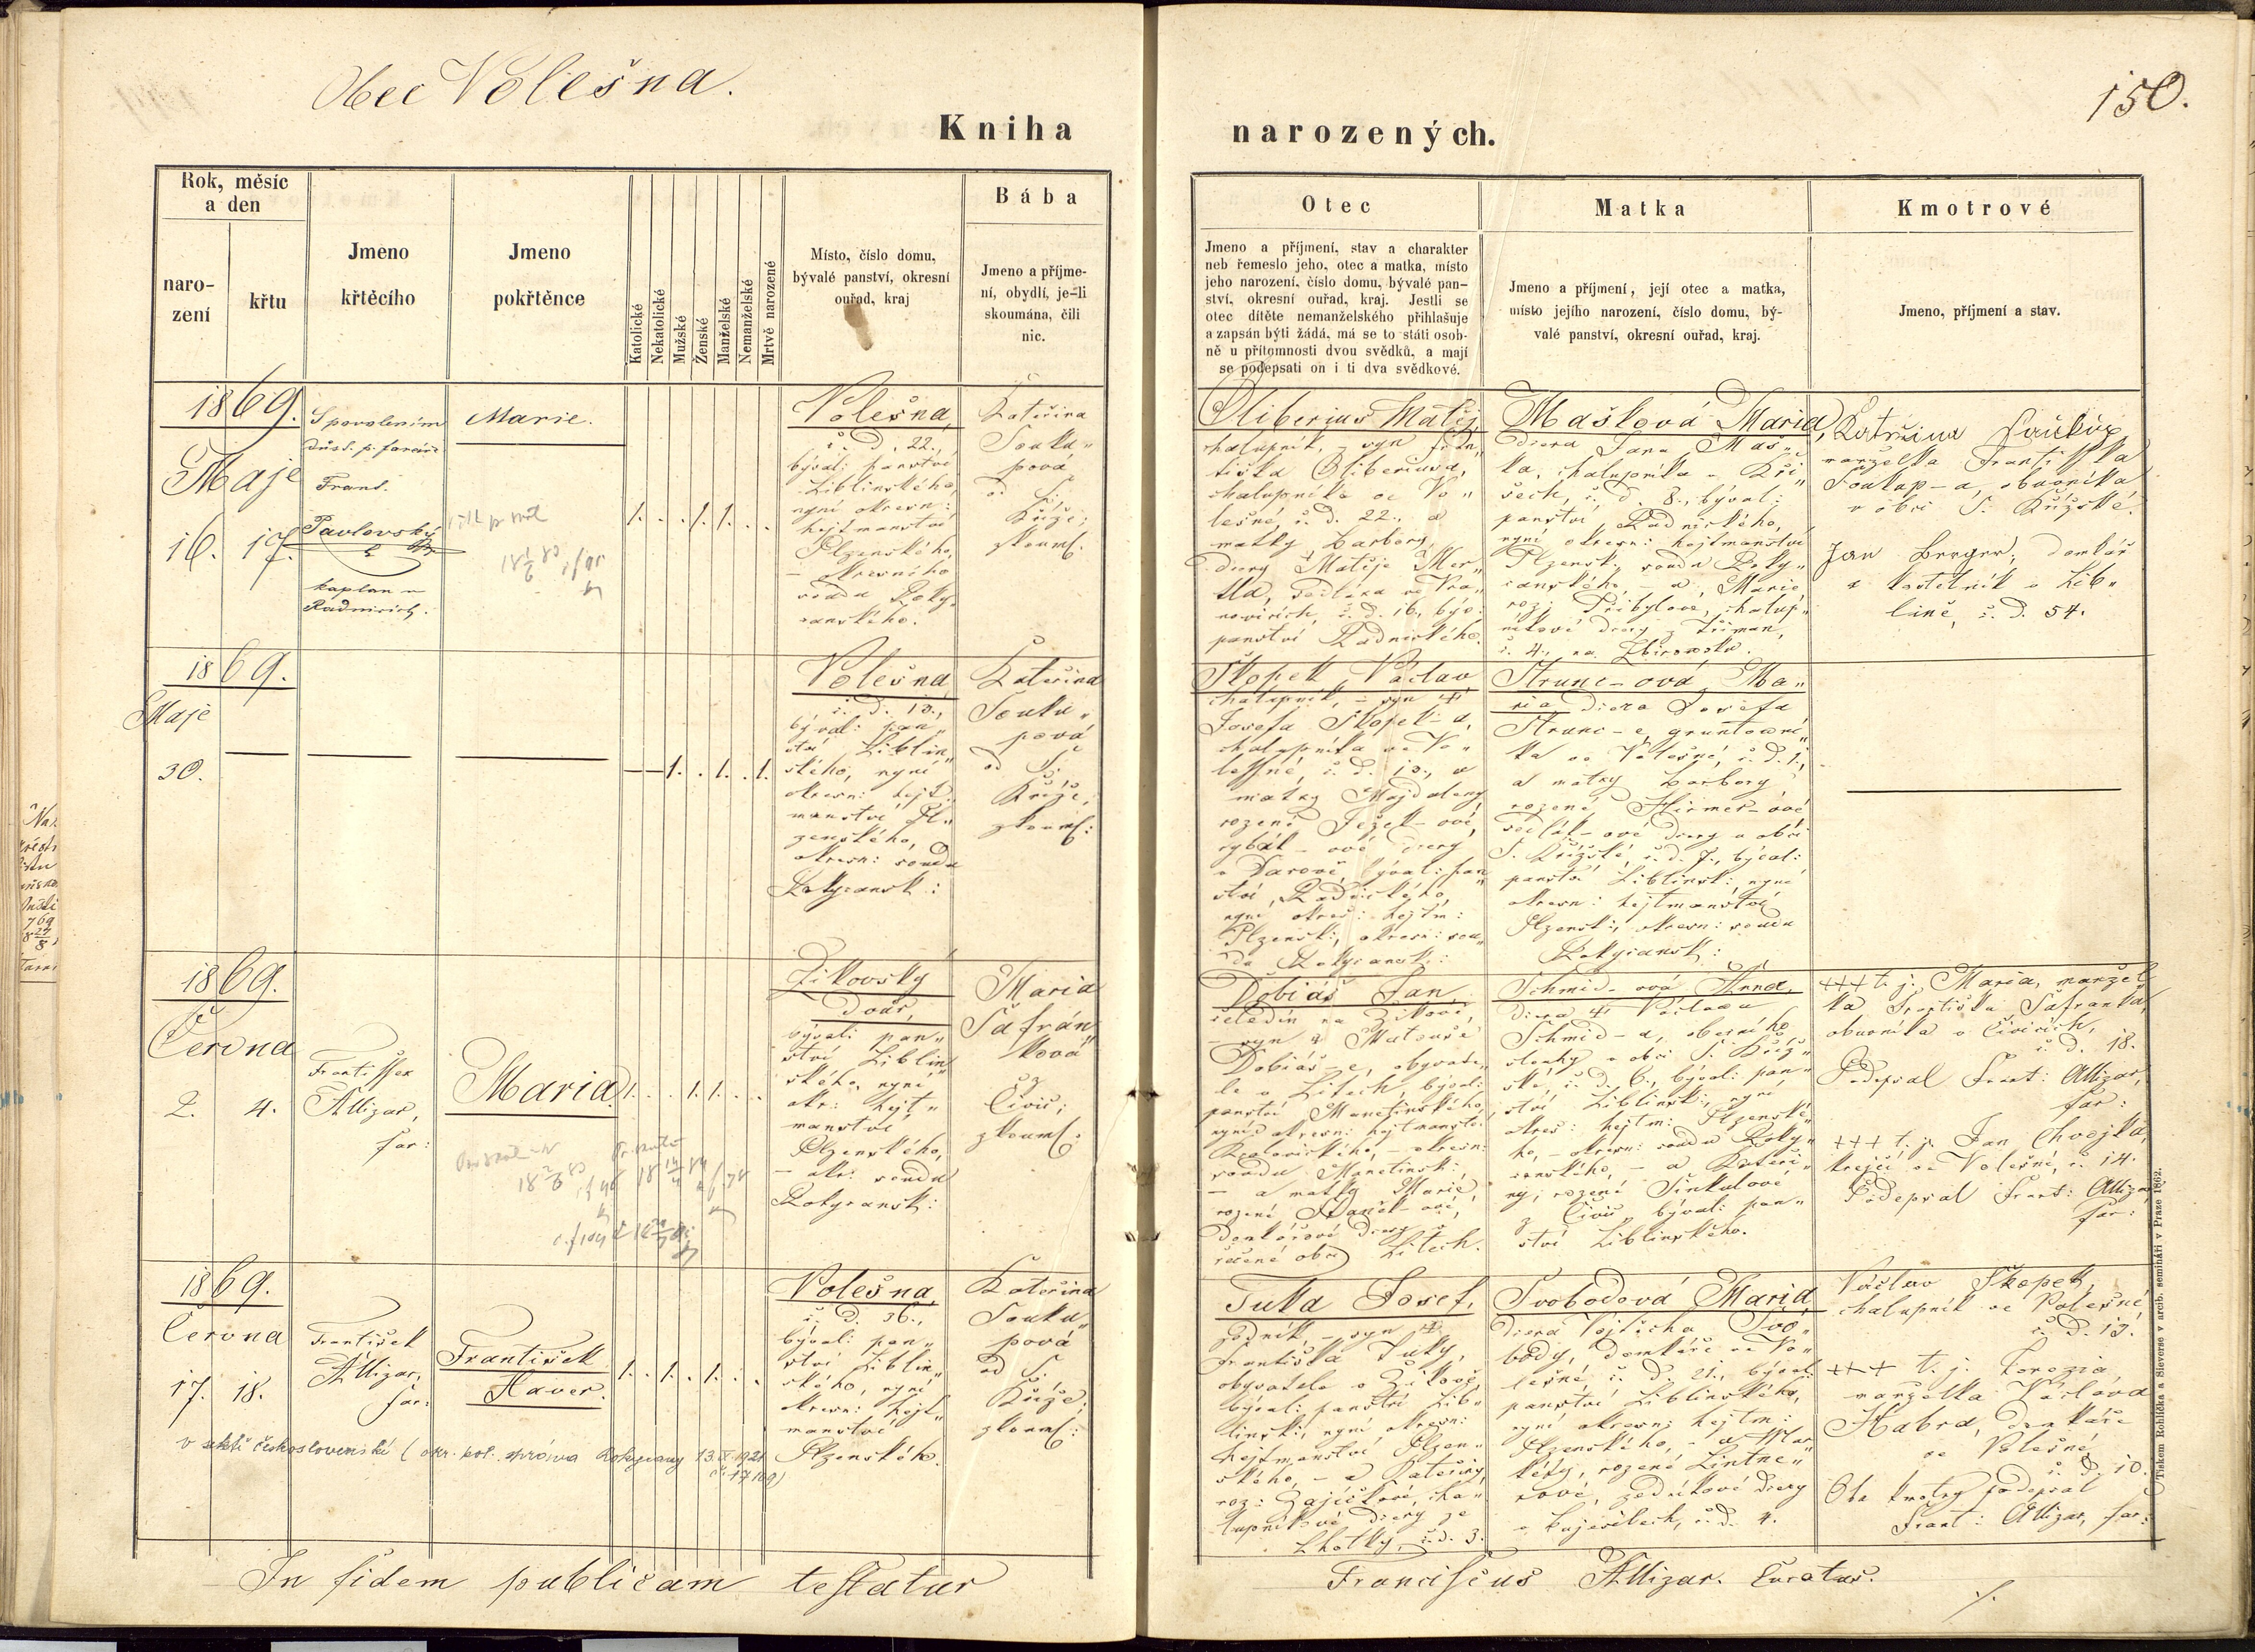 Obec Volešna.
150.
Kniha narozených.
Rok, měsíc
a den
naro-
zení
křtu
Jmeno
křtěcího
Jmeno
pokřtěnce
Katolické
Nekatolické
Mužské
Ženské
Manželské
Nemanželské
Mrtvě narozené
Místo, číslo domu,
bývalé panství, okresní
ouřad, kraj
Bába
Jmeno a příjme-
ní, obydlí, je-li
skoumána, čili
nic.
Otec
Jmeno a příjmení, stav a charakter
neb řemeslo jeho, otec a matka, místo
jeho narození, číslo domu, bývalé pan-
ství, okresní ouřad, kraj. Jestli se
otec dítěte nemanželského přihlašuje
a zapsán býti žádá, má se to státi osob-
ně u přítomnosti dvou svědků, a mají
se podepsati on i ti dva svědkové.
Matka
Jmeno a příjmení, její otec a matka,
místo jejího narození, číslo domu, bý-
valé panství, okresní ouřad, kraj.
Kmotrové
Jmeno, příjmení a stav.
1869.
Maje
16. 17.
S povolením
důst. p. faráře
Frant.
Pavlovský
kaplan v
Radnicích.
Marie.
1. . . 1. 1. . .
Volešna,
č. d. 22.,
býval: panství
Liblinského,
nyní okresn:
hejtmanství
Plzenského,
– okresního
soudu Roky-
canského.
Kateřina
Souku-
pová
od S.
Kříže;
zkoum:
Oliberius Matěj,
chalupník, – syn Fran-
tiška Oliberiusa,
chalupníka ve Vo-
lešné, č. d. 22., a
matky Barbory,
dcery Matěje Mer-
tla, sedláka ve Vra-
novicích, č. d. 16., býv:
panství Radnického.
Mašková Maria,
dcera Jana Maš-
ka, chalupníka v Kři-
šech, č. d. 8., býval:
panství Radnického,
nyní okresn: hejtmanství
Plzensk, soudu Roky-
canského, – a Marie,
roz: Přibylové, chalup-
níkové dcery z
č. 4., na Zbirovsku.
Kateřina
manželka Františka
Soukup-a, obuvníka
v obci S. Křížské.
Jan Berger, domkář
a kostelník v Lib-
líně, č. d. 54.
1869.
Maje
30.
— — 1. . 1. . 1.
Volešna
č. d. 13.,
býval: pan-
ství Liblin-
ského, nyní
okresn: hejt-
manství Pl-
zenského,
okresn: soudu
Rokycansk:
Kateřina
Souku-
pová
od S.
Kříže;
zkoum:
Skopek Václav
chalupník, – syn ✝
Josefa Skopek-a,
chalupníka ve Vo-
lešné, č. d. 13., a
matky Majdaleny
rozené Ježek-ové,
rybák-ové dcery
v Darové, býval: pan-
ství Radnického,
nyní okres: hejtm:
Plzensk:, okresn: sou-
du Rokycansk:
Strunc-ová Ma-
ria dcera Josefa
Strunc-e, gruntovní-
ka ve Volešné, č. d. 1.,
a matky Barbory
rozené
sedlák-ové dcery v obci
S. Křížské, č. d. 7., býval:
panství Liblinsk: nyní
okresn: hejtmanství
Plzensk:, okresn: soudu
Rokycansk:
1869.
Června
2. 4.
František
Allizar,
far:
Maria.
1. . . 1. 1. . .
Žikovsky
dvůr,
býval: pan-
ství Liblin-
ského, nyní
okr: hejt-
manství
Plzenského,
– okr: soudu
Rokycansk:
Maria
Šafrán-
ková
z
Čivic;
zkoum:
Dobiáš Jan,
čeledín na Žikově,
– syn ✝ Matouše
Dobiáš-e, obyvate-
le v Litech, býval:
panství Manetinského,
nyní okresn: hejtmanstv:
Kralovického, – okresn:
soudu Manetinsk:,
– a matky Marie
rozené
domkářové dcery z
řečené obce Litech.
Schmid-ová Anna,
dcera ✝ Václava
Schmid-a, obecního
slouhy v obci S. Kříž-
ské, č. d. 6., býval: pan-
ství Liblinsk:, nyní
okres: hejtm: Plzenské-
ho, – okresn: soudu Roky-
canského, – a Kateři-
ny, rozené Šinkulové
z Čivic, býval: pan-
ství Liblinského.
+++ t. j. Maria, manžel-
ka Františka Šafránka,
obuvníka v Čivicích,
č. d. 18.
Podepsal Frant: Allizar,
far:
+++ t. j. Jan Chvojka,
krejčí ve Volešné, č. 14.
Podepsal Frant: Allizar
far:
1869.
Června
17. 18.
František
Allizar,
far:
František
Xaver.
1. . 1. . 1. . .
Volešna,
č. d. 36.,
býval: pan-
ství Liblin-
ského, nyní
okresn: hejt-
manství
Plzenského.
Kateřina
Souku-
pová
od S.
Kříže;
zkoum:
v sektě československé (okr. pol. správa Rokycany 13.IV.1921
č. 17109)
Tuka Josef,
zedník, – syn ✝
Františka Tuky,
obyvatele v Žikově,
býval: panství Lib-
linsk:, nyní okresn:
hejtmanství Plzen-
ského, – a Kateřiny,
roz: Zajíčkové, cha-
lupníkové dcery ze
Lhotky, č. d. 3.
Svobodová Maria,
dcera Vojtěcha Svo-
body, domkáře ve Vo-
lešné, č. d. 21., býval:
panství Liblinského,
nyní okresn: hejtm:
Plzenského, – a Mar-
kéty, rozené Lintne-
rové, zedníkové dcery
v Bujesilech, č. d. 4.
Václav Skopek,
chalupník ve Volešné,
č. d. 13.
+++ t. j. Terezia,
manželka Václava
Habra, domkáře
ve Volešné,
č. d. 10.
Oba kmotry podepsal
Frant: Allizar, far:
In fidem publicam testatur
Franciscus Allizar. Curatus.
Tiskem Rohlíčka a Sieverse v arcib. semináři v Praze 1862.